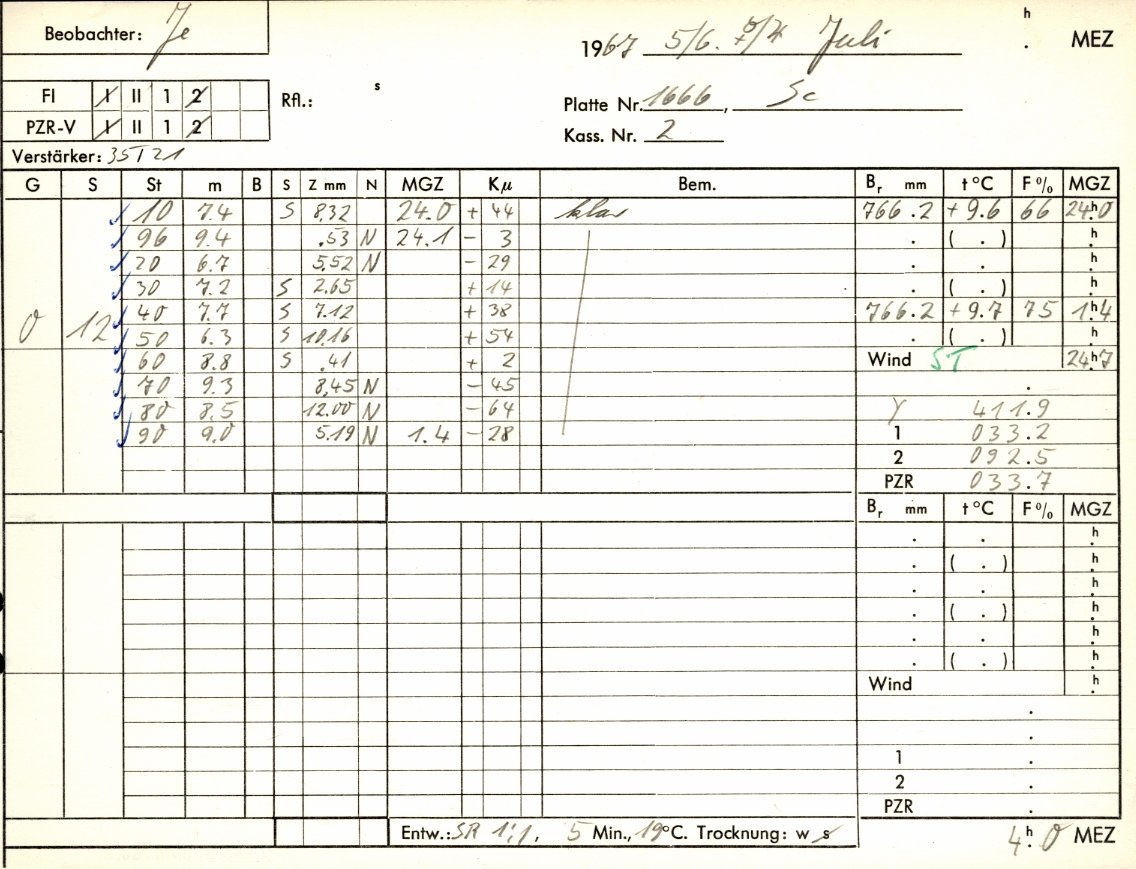 Beobachter: Je
1967 5/6. ☿/♃ Juli h . MEZ
FI I II 1 2 Rfl.: s
PZR-V I II 1 2
Platte Nr. 1666, Sc
Kass. Nr. 2
Verstärker: 35T21
G S St m B S Z mm N MGZ Kμ Bem. Br mm t °C F % MGZ
10 7.4 S 8,32 24.0 + 44 klar 766.2 + 9.6 66 24h0
96 9.4 .53 N 24.1 - 3 . ( . ) h
20 6.7 5,52 N - 29 . . h
30 7.2 S 2.65 + 14 . ( . ) h
0 12 40 7.7 S 7.12 + 38 766.2 + 9.7 75 1h4
50 6.3 S 10.16 + 54 . ( . ) h
60 8.8 S .41 + 2 Wind ST 24h7
70 9.3 8,45 N - 45 .
80 8.5 12.00 N - 64 γ 411.9
90 9.0 5.19 N 1.4 - 28 1 033.2
2 092.5
PZR 033.7
Br mm t °C F % MGZ
. . h
. ( . ) h
. . h
. ( . ) h
. . h
. ( . ) h
Wind h
.
.
1 .
2 .
PZR .
Entw.: SR 1:1, 5 Min., 19°C. Trocknung: w s 4h.0 MEZ